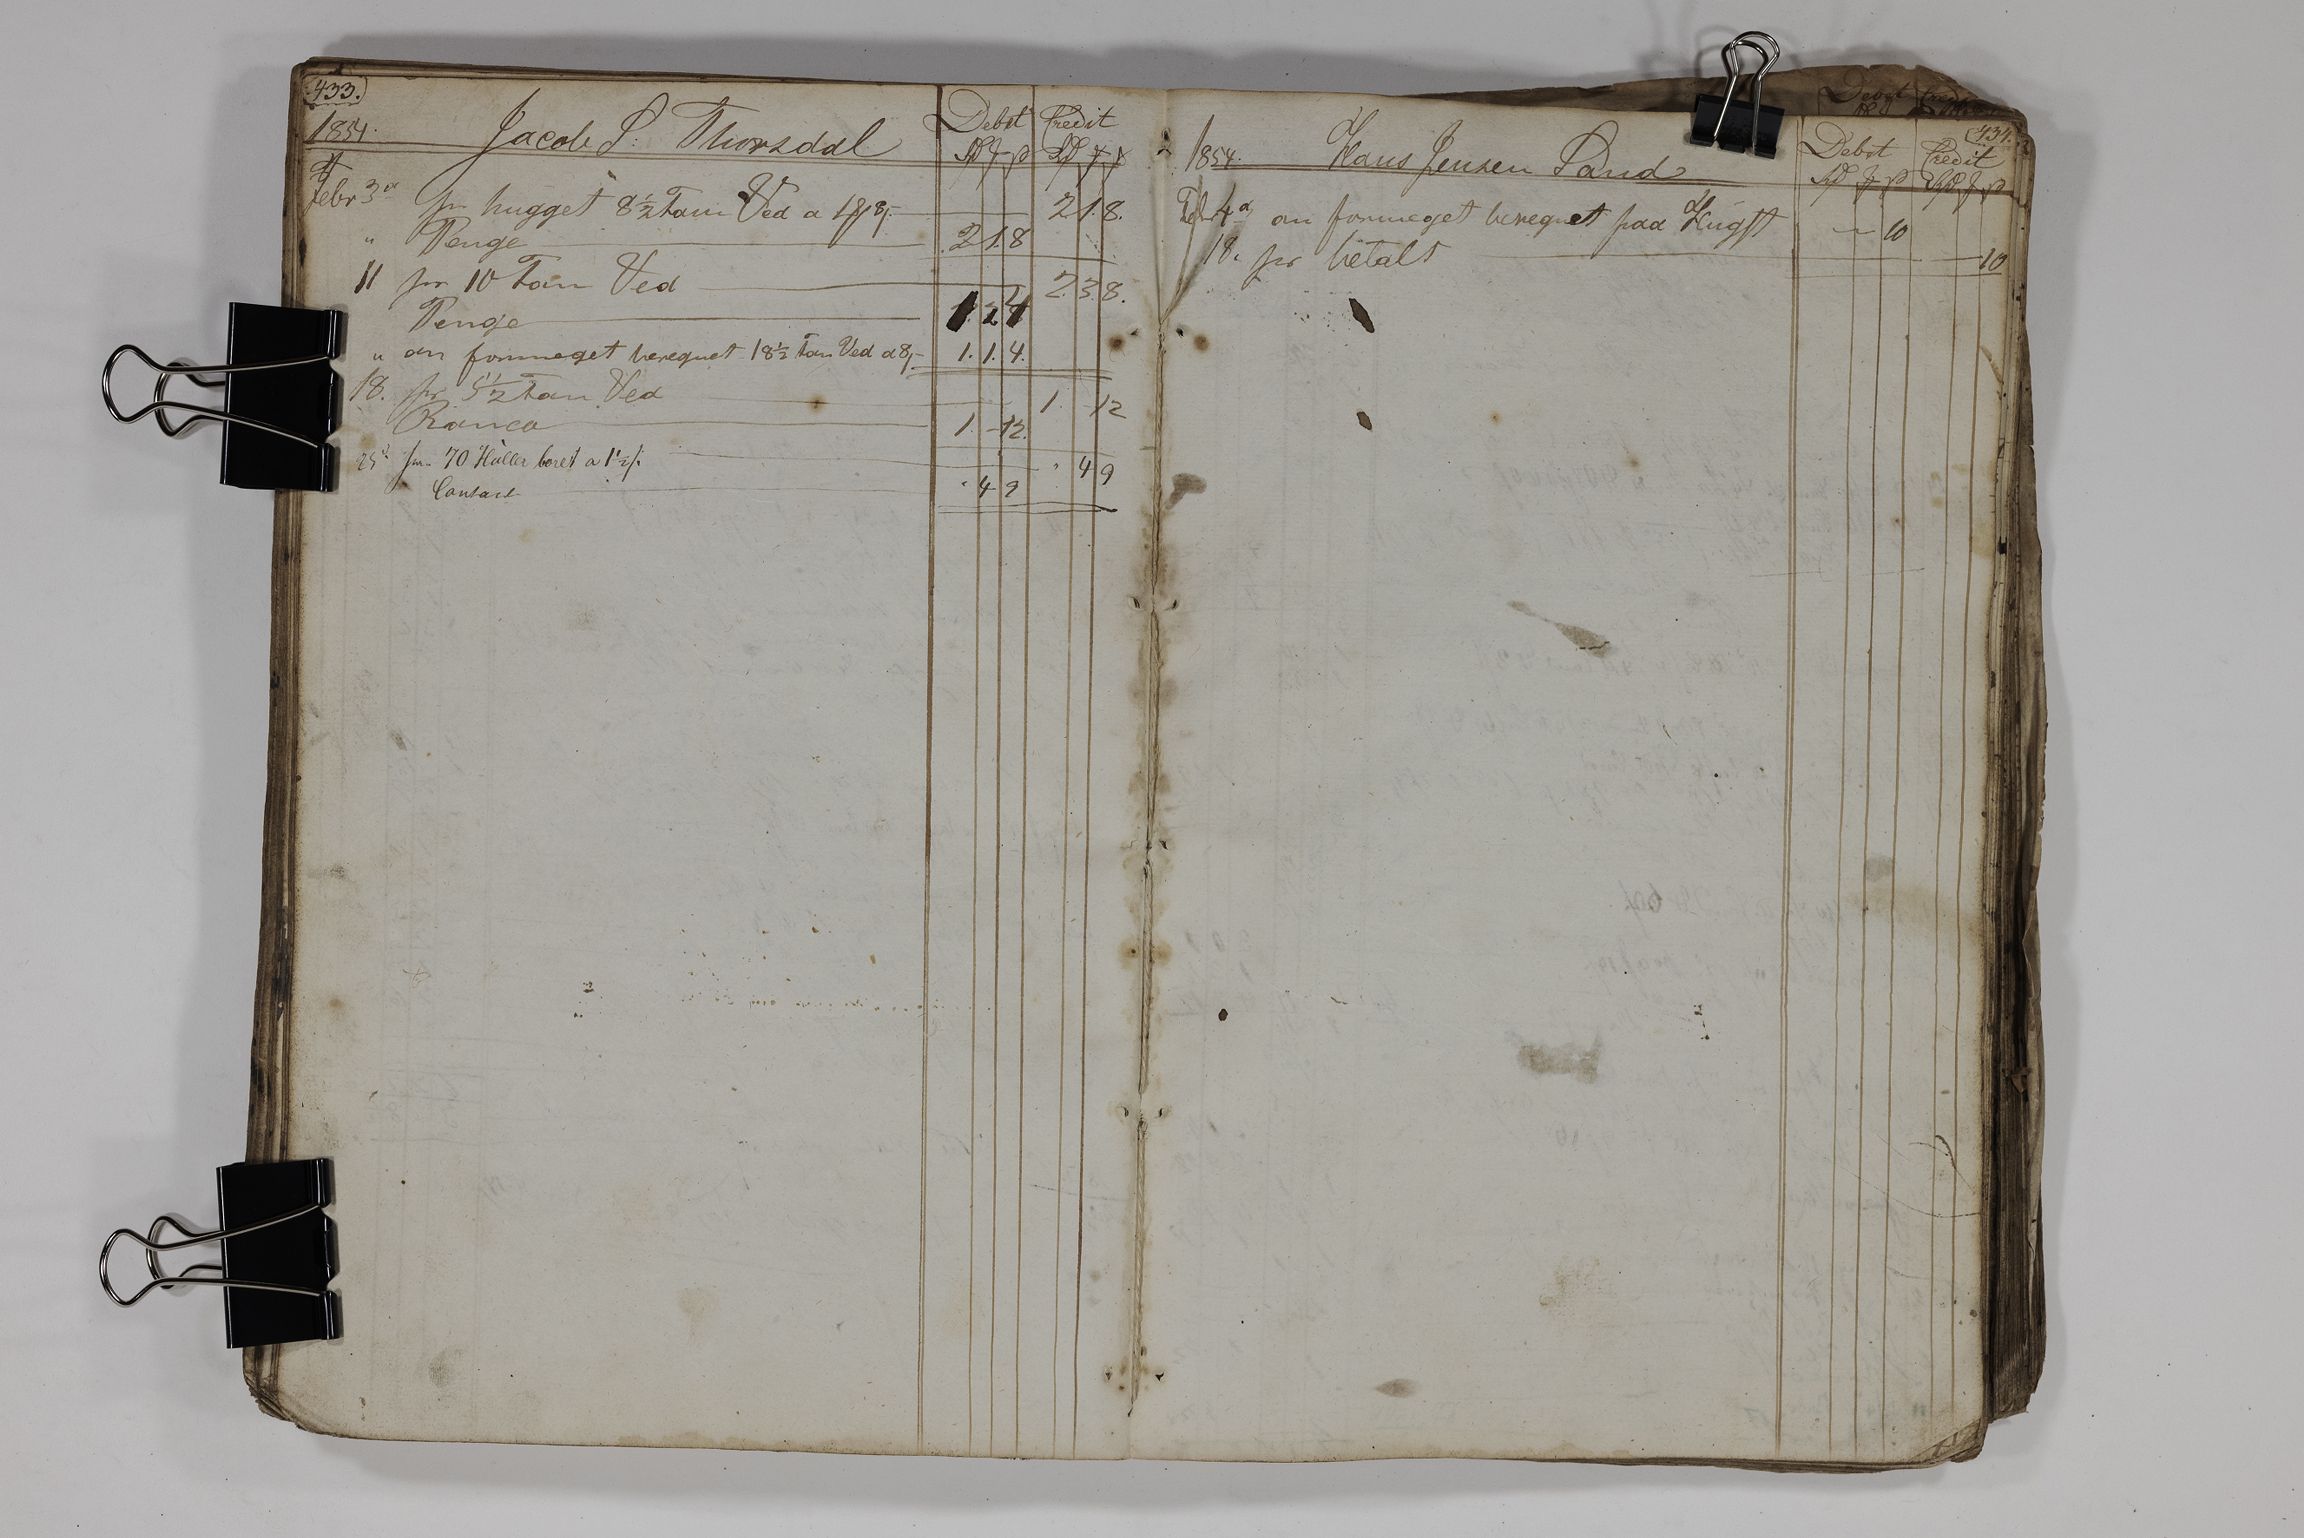 433.
1854. Jacob P. Thorsdal Debet Credit
Febr 3d pr hugget 8½ Favn Ved a 1/ 8/- 2.1.8.
" Penge 2.1.8
11 pr 10 Favn Ved 2.3.8.
Penge 1.2.4
" an formeget beregnet 18½ Favn Ved a 8/- 1.1.4.
18. pr 5½ Favn Ved 1. - 12
Ranco 1. - 12.
25d pr 70 Huller boret a 1½/. " 4 9
Contant " 4 9
434.
1854. Hans Jensen Sand Debet Credit
Feb 4d an formeget beregnet paa Hugst - - 10
18. pr betalt - - 10